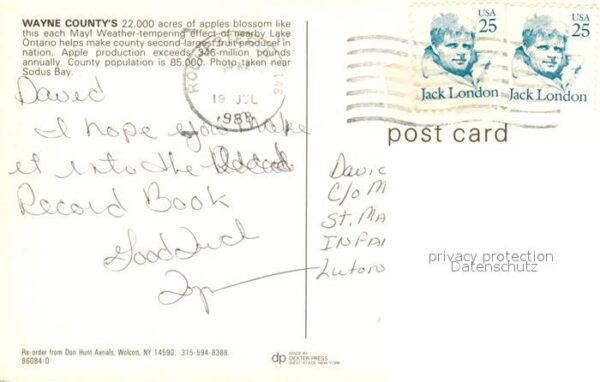 WAYNE COUNTY'S 22,000 acres of apples blossom like
this each May! Weather-tempering effect of nearby Lake
Ontario helps make county second-largest fruit producer in
nation. Apple production exceeds 346-million pounds
annually. County population is 85,000. Photo taken near
Sodus Bay.
David
I hope you make
it into the
Record Book
Good Luck
19 JUL
1988
USA
25
Jack London
USA
25
Jack London
post card
David
C/O M
ST. MA
INFAN
Luton
privacy protection
Datenschutz
Re-order from Don Hunt Aerials, Wolcott, NY 14590. 315-594-8388.
86084-D
dp
MADE BY
DEXTER PRESS
WEST NYACK NEW YORK